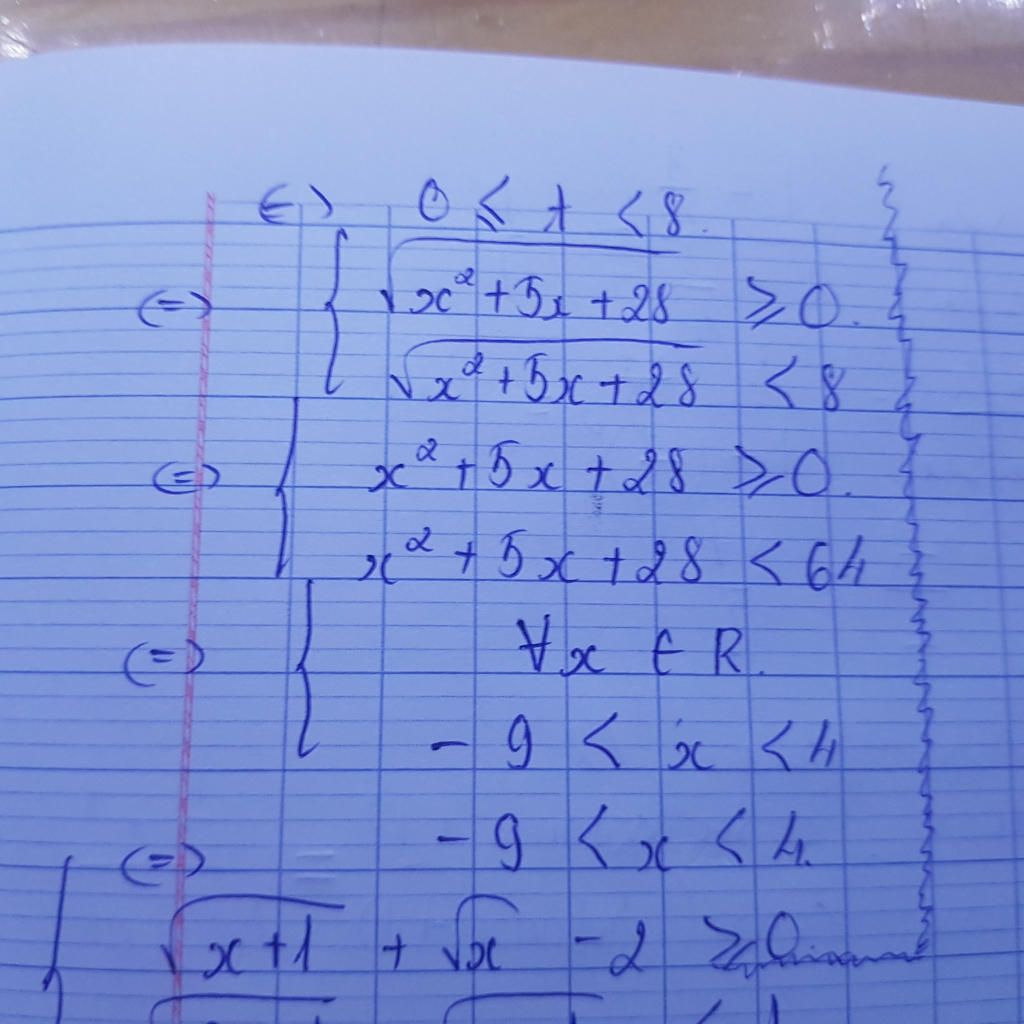 ⇔ 0 ≤ t < 8.
⇔ { √(x² + 5x + 28) ≥ 0.
√(x² + 5x + 28) < 8
⇔ { x² + 5x + 28 ≥ 0.
x² + 5x + 28 < 64
⇔ { ∀x ∈ R.
- 9 < x < 4
⇔ - 9 < x < 4.
{ √(x + 1) + √x - 2 ≥ 0